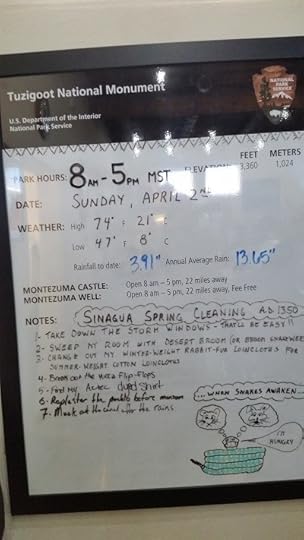 Tuzigoot National Monument
U.S. Department of the Interior
National Park Service
NATIONAL PARK SERVICE
FEET METERS
PARK HOURS: 8AM-5PM MST ELEVATION: 3,360 1,024
DATE: SUNDAY, APRIL 2nd
WEATHER: High 74° F 21° C
Low 47° F 8° C
Rainfall to date: 3.91" Annual Average Rain: 13.65"
MONTEZUMA CASTLE: Open 8 am – 5 pm, 22 miles away
MONTEZUMA WELL: Open 8 am – 5 pm, 22 miles away, Fee Free
NOTES: SINAGUA SPRING CLEANING A.D. 1350
1- TAKE DOWN THE STORM WINDOWS - THAT'LL BE EASY!!
2- SWEEP MY ROOM WITH DESERT BROOM (OR BROOM SNAKEWEED
3- CHANGE OUT MY WINTER-WEIGHT RABBIT-FUR LOINCLOTHS FOR
SUMMER-WEIGHT COTTON LOINCLOTHS
4- out the Yucca Flip-Flops
5- my shirt
6- Replaster the pueblo before monsoon
7- after the rains
...WHEN SNAKES AWAKEN...
I'M
HUNGRY